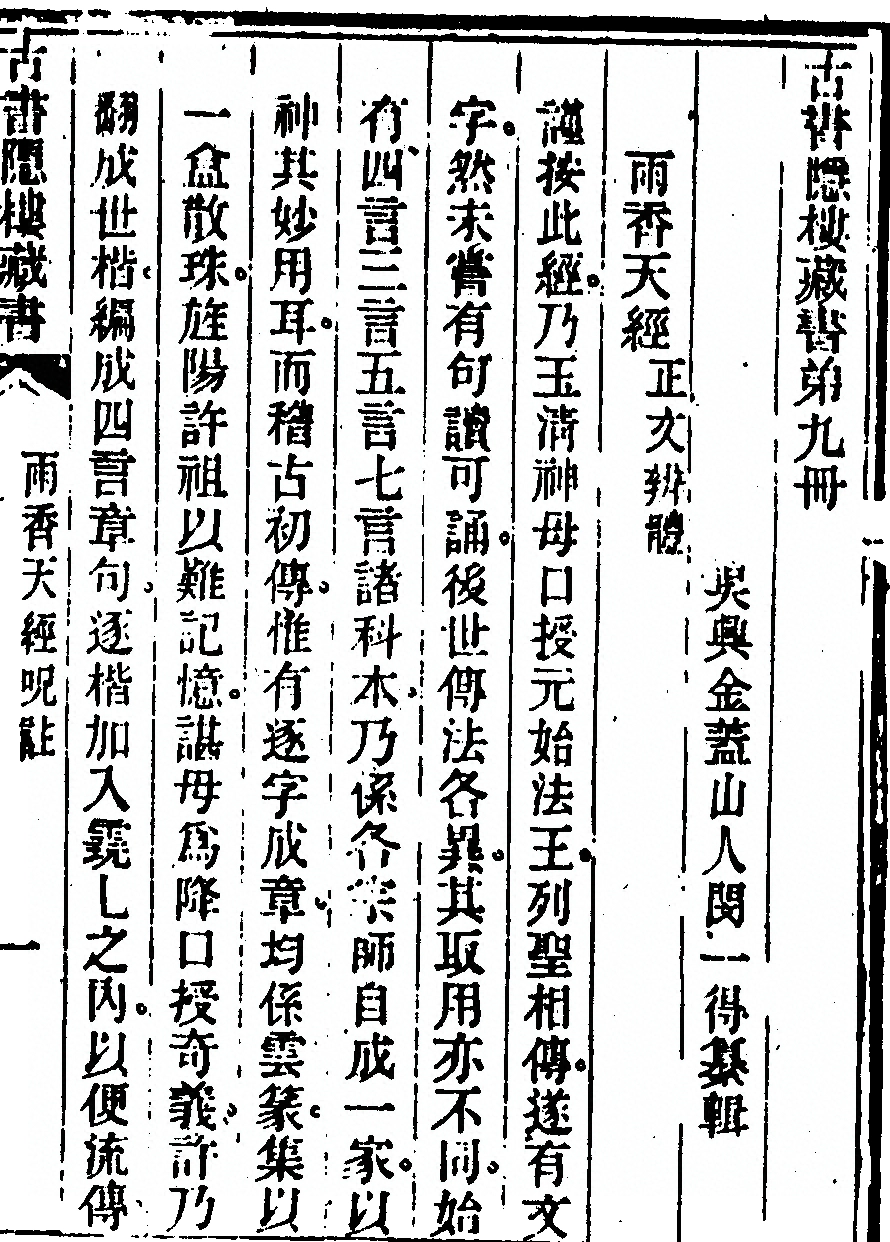 古書隱樓藏書第九冊
吳興金蓋山人閔一得纂輯
雨香天經 正文辨體
謹按此經。乃玉清神母口授元始法王。列聖相傳。遂有文
字。然未嘗有句讀可誦。後世傳法各異。其取用亦不同。始
有四言三言五言七言諸科本。乃係各宗師自成一家。以
神其妙用耳。而稽古初傳。惟有逐字成章。均係雲篆。集以
一盒散珠。旌陽許祖以難記憶。諶母爲降口授奇義。許乃
翻成世楷。編成四言章句。逐楷加入乚之內。以便流傳
古書隱樓藏書
雨香天經呪註
一